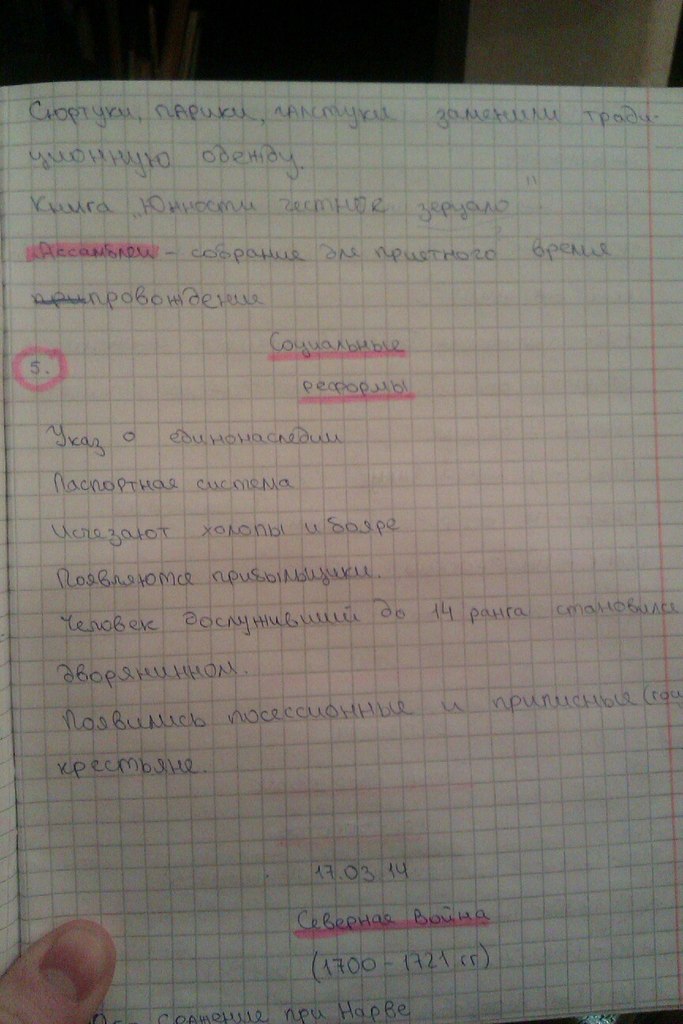 Сюртуки, парики, галстуки заменили тради-
ционную одежду.
Книга „Юности честное зерцало"
Ассамблеи – собрание для приятного время
провождения
Социальные
5.
реформы
Указ о единонаследии
Паспортная система
Исчезают холопы и бояре
Появляются прибыльщики.
Человек дослуживший до 14 ранга становился
дворянинном.
Появились посессионные и приписные (гос
крестьяне.
17.03.14
Северная война
(1700 – 1721 гг)
сражение при Нарве